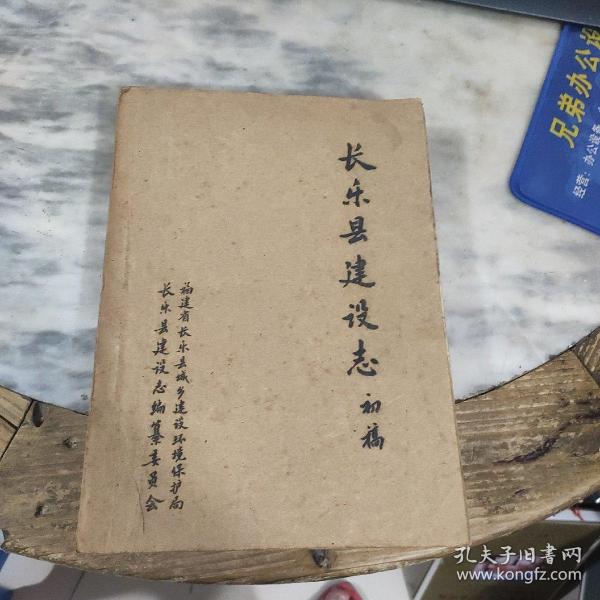 长乐县建设志初稿
福建省长乐县城乡建设环境保护局
长乐县建设志编纂委员会
兄弟办公设
经营：办公设备
孔夫子旧书网
www.kongfz.com